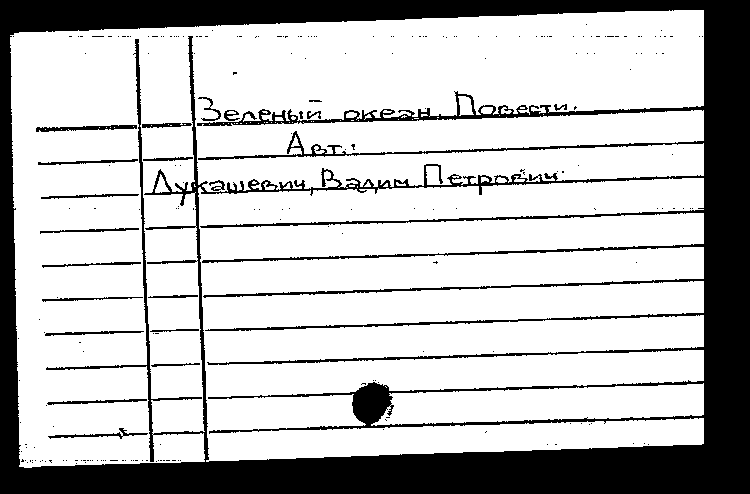 Зеленый океан. Повести.
Авт.:
Лукашевич, Вадим Петрович.